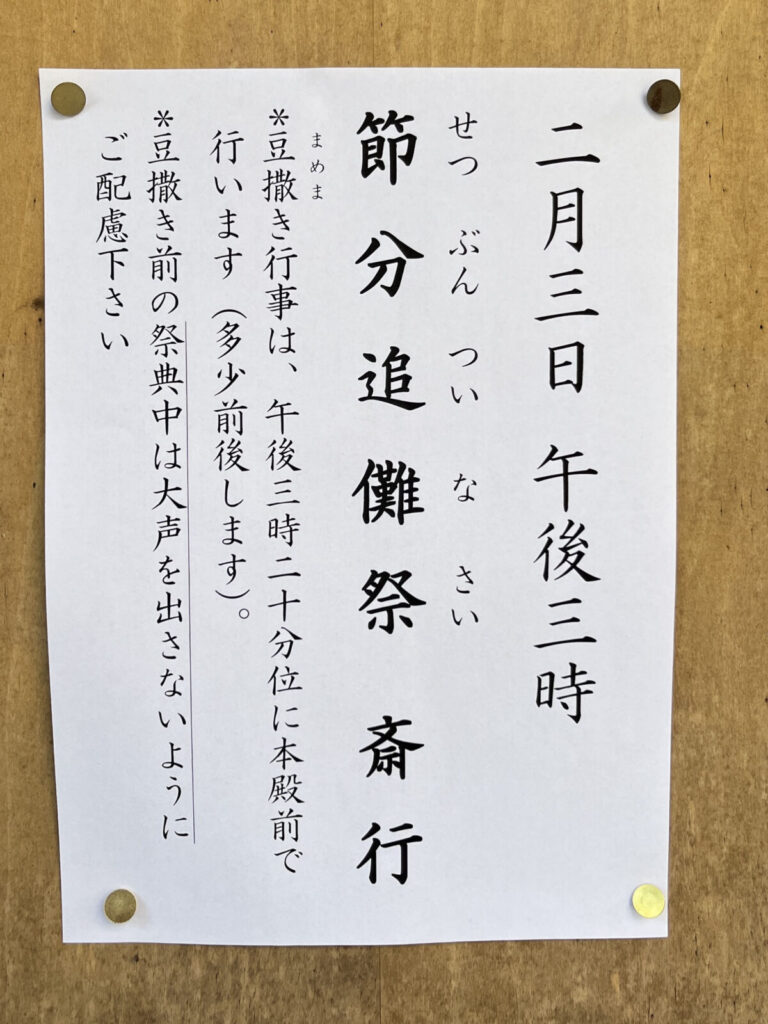 二月三日 午後三時
せつ ぶん つい な さい
節分追儺祭 斎行
まめま
＊豆撒き行事は、午後三時二十分位に本殿前で
行います（多少前後します）。
＊豆撒き前の祭典中は大声を出さないように
ご配慮下さい